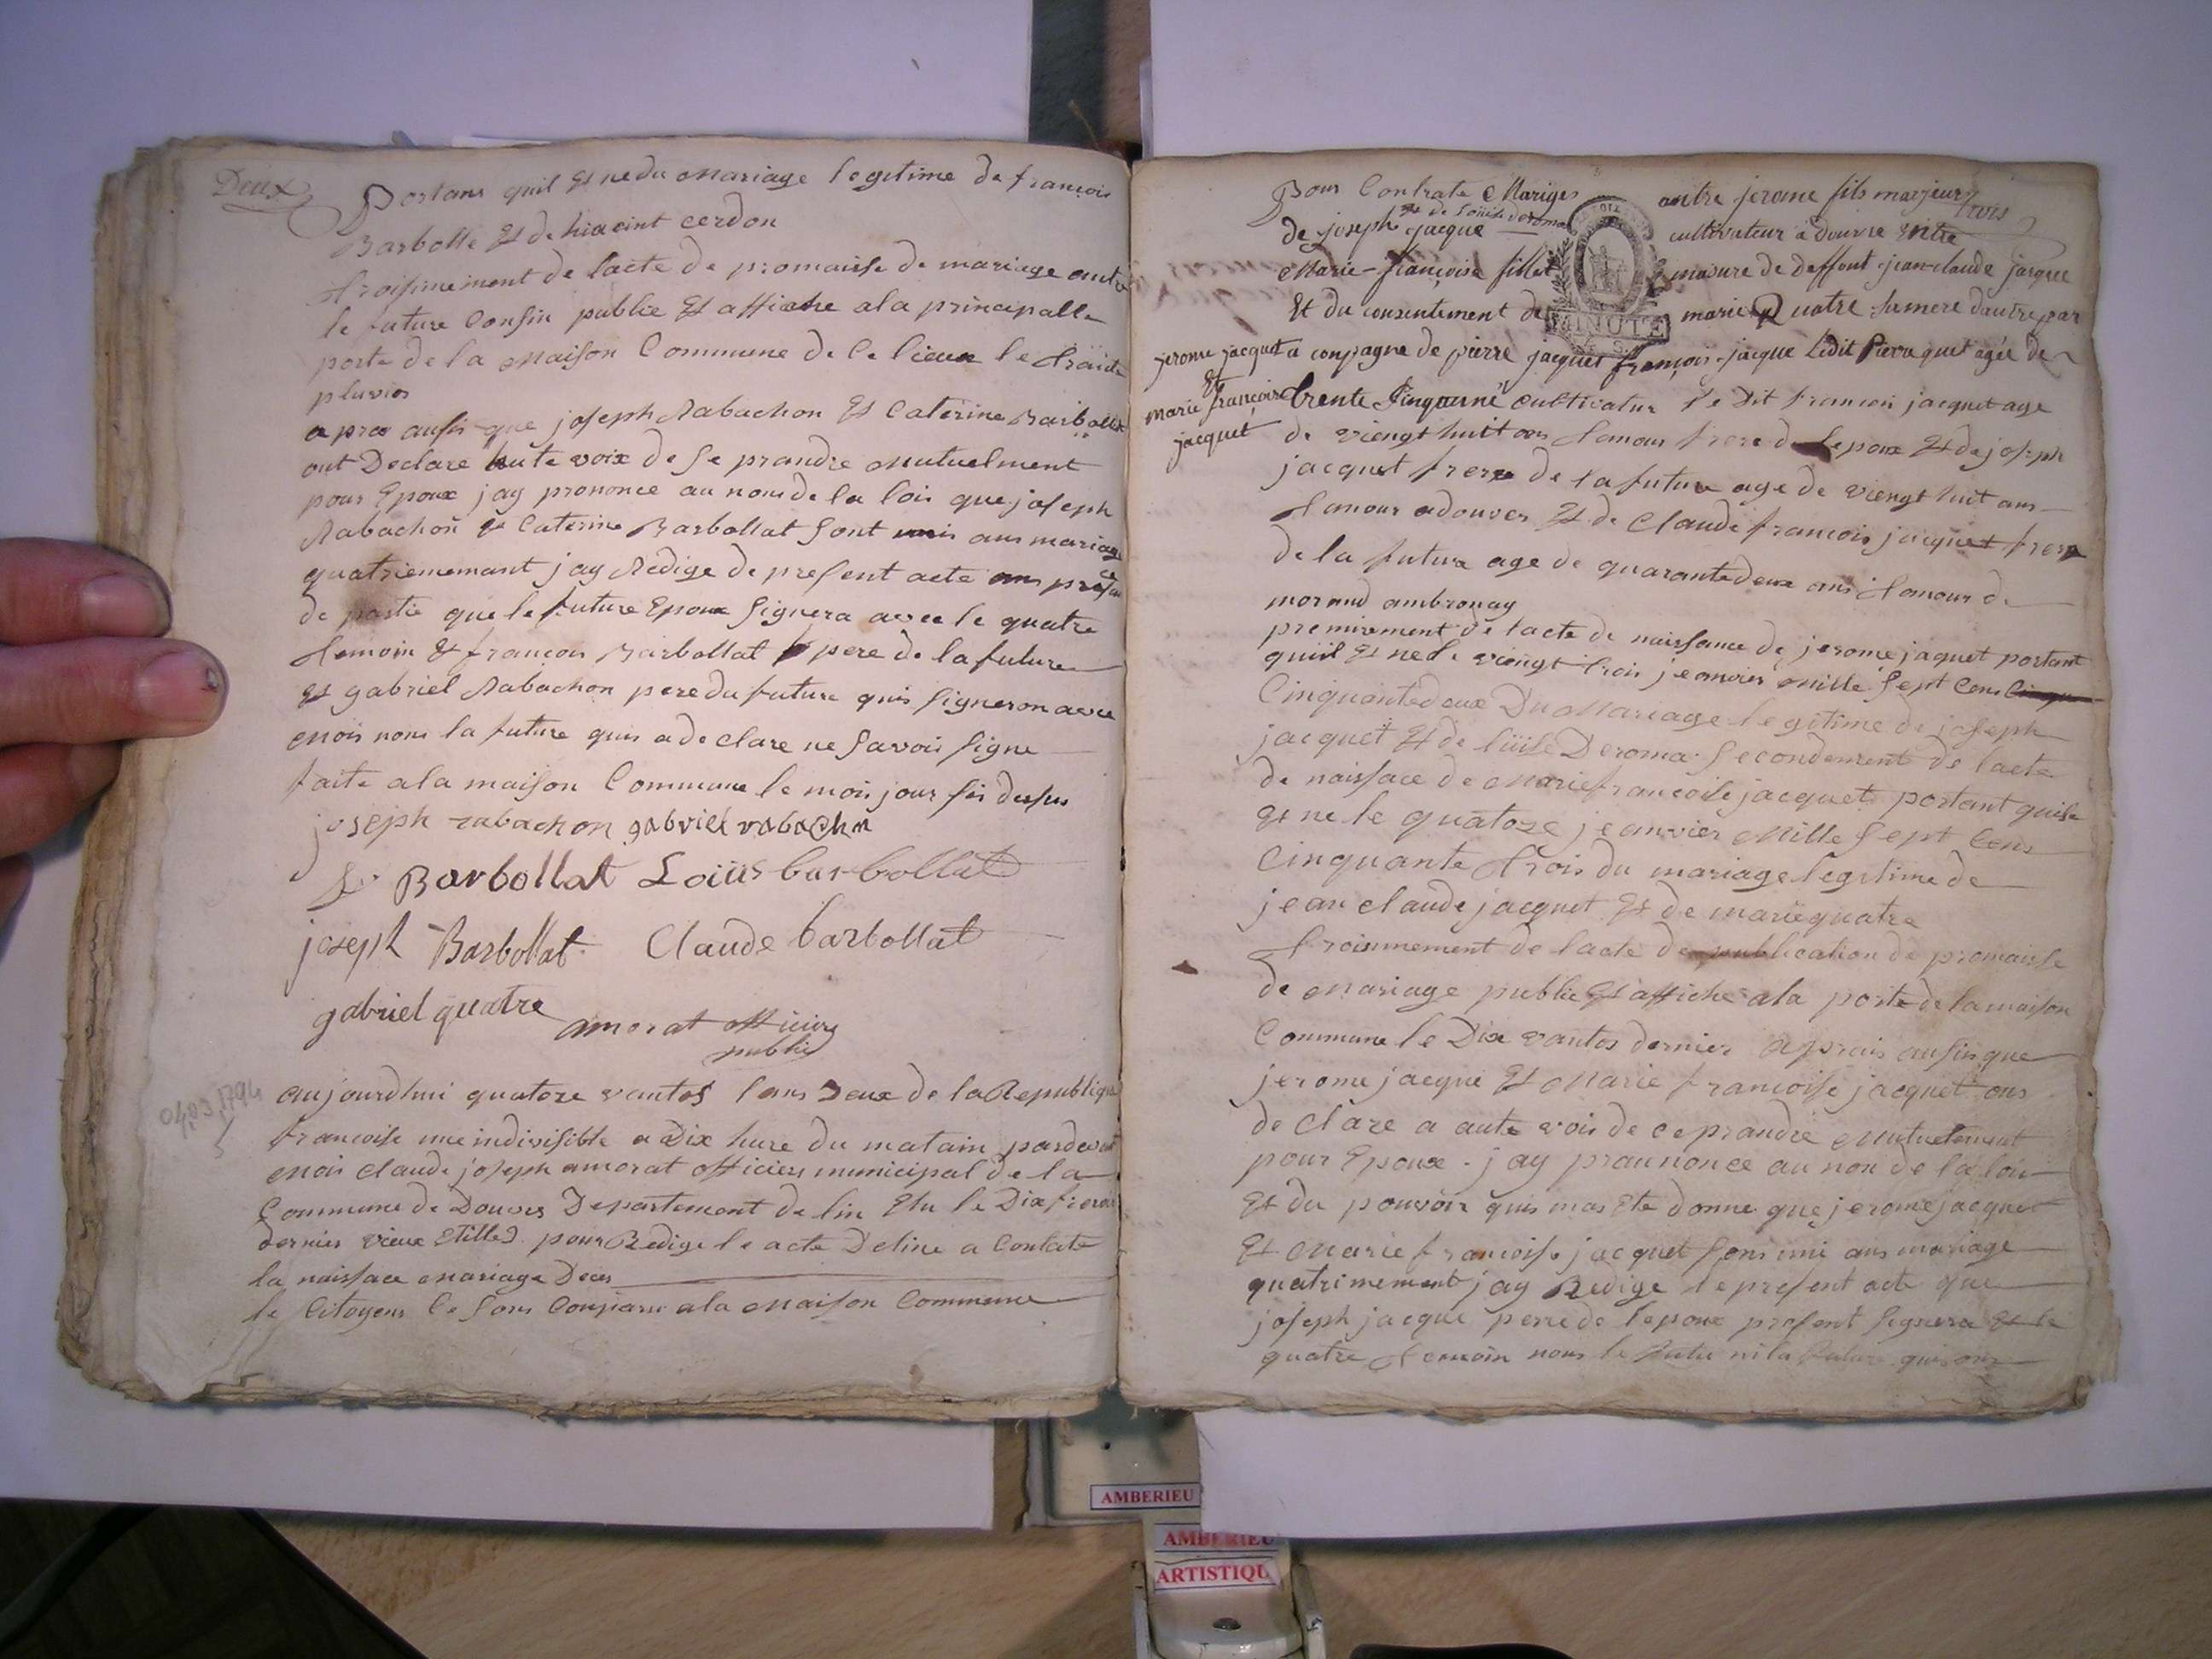 Deux
Portans quil Et ne du Mariage legitime de francois
Barbolle Et de hiacint cerdon
troisimement de lacte de promaisse de mariage antre
le future Consin publie Et affiche ala principalle
porte de la Maison Commune de Ce lieux le
pluvios
apres ausis que joseph Rabachon Et Caterine Barbollat
out Declare hute voix de Se prandre Mutuelment
pour Epoux jay prononce au nom de la lois que joseph
Rabachon Et Caterine Barbollat Sont unis ans mariage
quatriemement jay Redige de present acte ans presance
de partie que le future Epoux Signera avec le quatre
temoin Et francois Barbollat pere de la future
Et gabriel Rabachon pere du future quis Signeron avec
Mois nons la future quis a declare ne Savois Signe
faite ala maison Commune le mois jour sis desus
joseph rabachon gabriel rabachn
Barbollat Loüis barbollat
joseph Barbollat Claude barbollat
gabriel quatre amorat officiers
public
04.03.1794
5
aujourdhui quatoze vantos lans Deux de la Republique
francoise une indivisible a Dix hure du matain pardevant
Mois Claude joseph amorat officiers municipal de la
Commune de Douvres Departement de lin Elu le Dix
dernier vieux Stille pour Redige le acte Deline a Contate
la naissace Mariage Deces
le Citoyens Ce Sons ala Maison Commune
Pour Contrate Mariges antre jerome fils marjeur
trois
de joseph jacque Et de Loüise deroma cultivateur a douvre
Marie-françoise fillet majure de deffont jean-claude jacque
Et du consentement de marie Quatre samere dautre par
MINUTE
jerome jacquet
Et
marie françoise
jacquet
a conpagne de pierre jacquet françois jacque Ledit Pierre quet agée de
trente cultivatur le Dit francois jacquet age
de viengt huit ans temour frere de lepoux Et de joseph
jacquet frere de la future age de viengt huit ans
temour adouvres Et de Claude francois jacquet frere
de la future age de quarante deux ans temour de
morand ambronay
premirement de lacte de naissance de jerome jaquet portant
quiil Et ne le viengt trois jeanvier Mille Sept Cens
Cinquante deux Du Mariage legitime de joseph
jacquet Et de lüise Deroma Secondement de lacte
de naissace de Marie francoise jacquet portant quise
Et ne le quatoze jeanvier Mille Sept Cens
Cinquante trois du mariage legitime de
jean claude jacquet Et de marie quatre
troisinement de lacte de publication de promaisse
de Mariage publie Et affiche ala porte de la maison
Commune le Dix vantos dernier aprais ausis que
jerome jacque Et Marie francoise jacquet ons
de Clare a aute vois de ce prandre Mutuelement
pour Epoux jay praunonce au non de la loi
Et du pouvoir quis mas Ete donne que jerome jacquet
Et Marie francoise jacquet Sons uni ans mariage
quatrimement jay Redige le present acte que
joseph jacque perre de lepoux present Signera Et le
quatre temoin nons le futu ni la future quis ons
AMBERIEU
AMBERIEU
ARTISTIQU